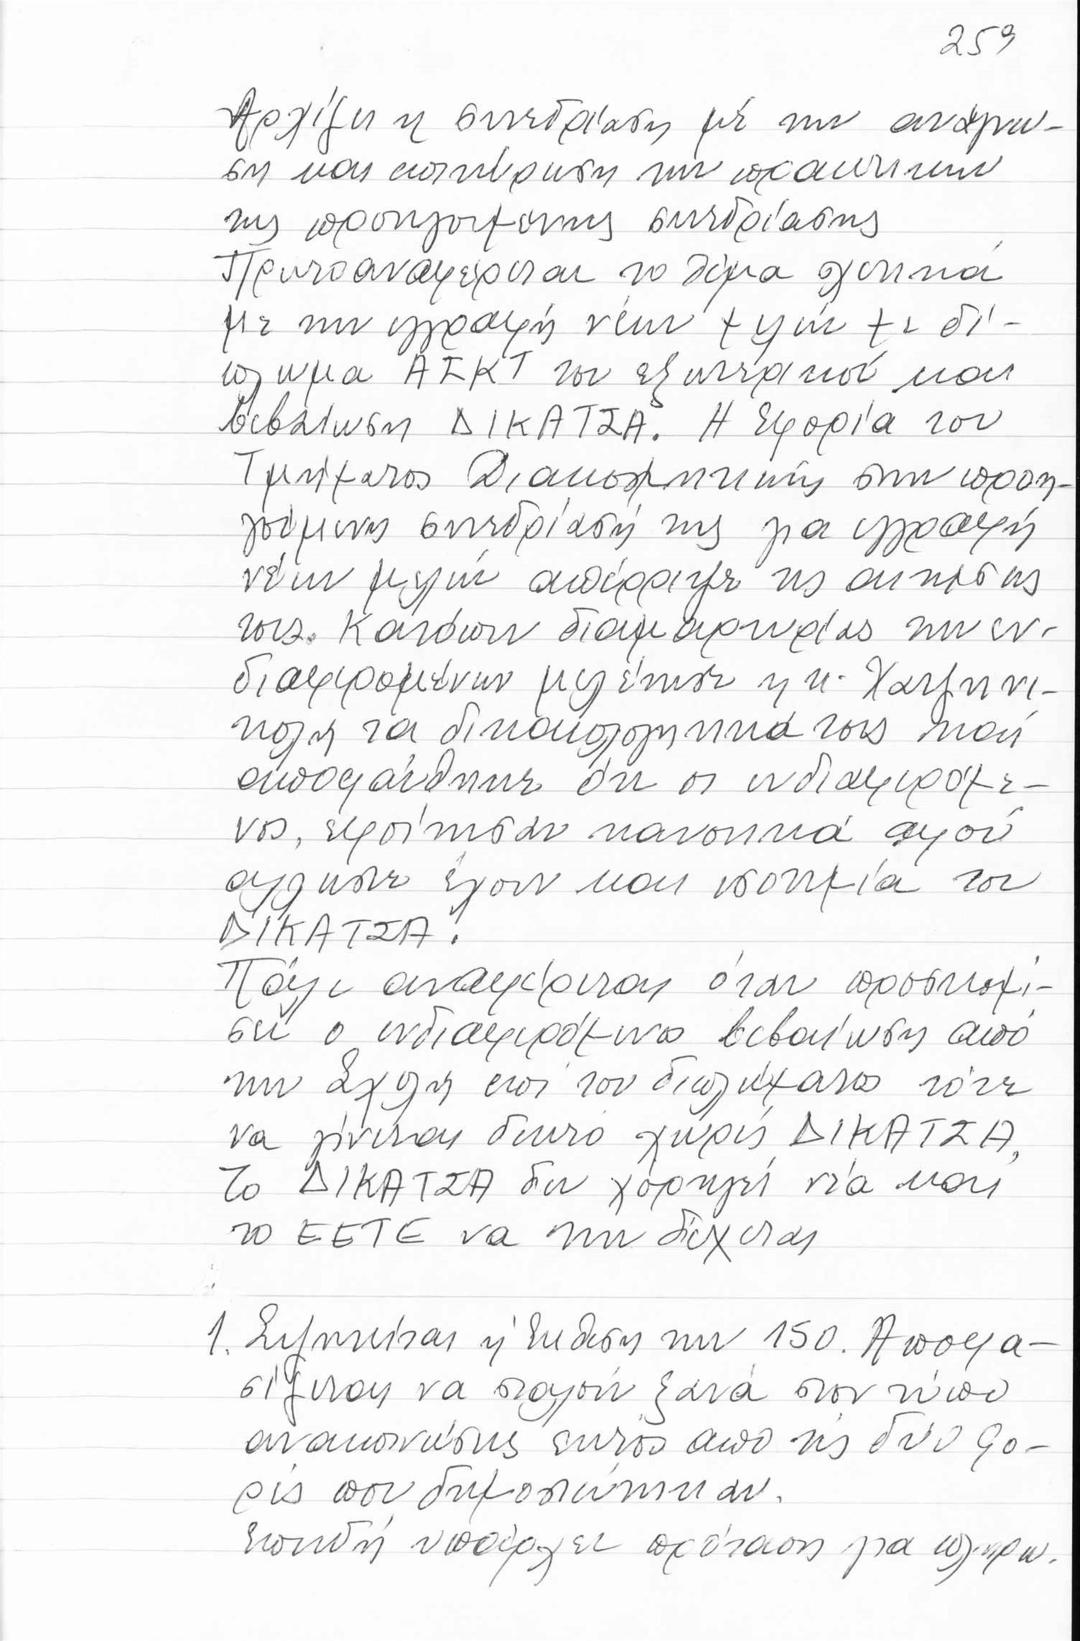 259
Αρχίζει η συνεδρίαση μέ την ανάγνω-
ση και επικύρωση των πρακτικών
της προηγουμενης συνεδρίασης
Πρωτοαναφέρεται το θέμα σχετικά
με την εγγραφή νέων μελών με δί-
πλωμα ΑΣΚΤ του εξωτερικού και
βεβαίωση ΔΙΚΑΤΣΑ. Η Εφορία του
Τμήματος Διακοσμητικής στην προη-
γούμενη συνεδρίασή της για εγγραφή
νέων μελών απέρριψε τις αιτήσεις
τους. Κατόπιν διαμαρτυρίας των εν-
διαφερομένων μελέτησε η κ. Χατζηνι-
κολή τα δικαιολογητικά τους και
αποφάνθηκε ότι οι ενδιαφερόμε-
νοι, εφοίτησαν κανονικά αφού
άλλωστε έχουν και ισοτιμία του
ΔΙΚΑΤΣΑ.
Πάλι αναφέρεται όταν προσκομί-
σει ο ενδιαφερόμενος βεβαίωση από
την Σχολή επί του διπλώματος τότε
να γίνεται δεκτό χωρίς ΔΙΚΑΤΣΑ,
το ΔΙΚΑΤΣΑ δεν χορηγεί νέα και
το ΕΕΤΕ να την δέχεται
1. Συζητείται η Έκθεση των 150. Αποφα-
σίζεται να σταλούν ξανά στον τύπο
ανακοινώσεις εκτός από τις δύο φο-
ρές που δημοσιεύτηκαν.
Επειδή υπάρχει πρόταση για πληρω.